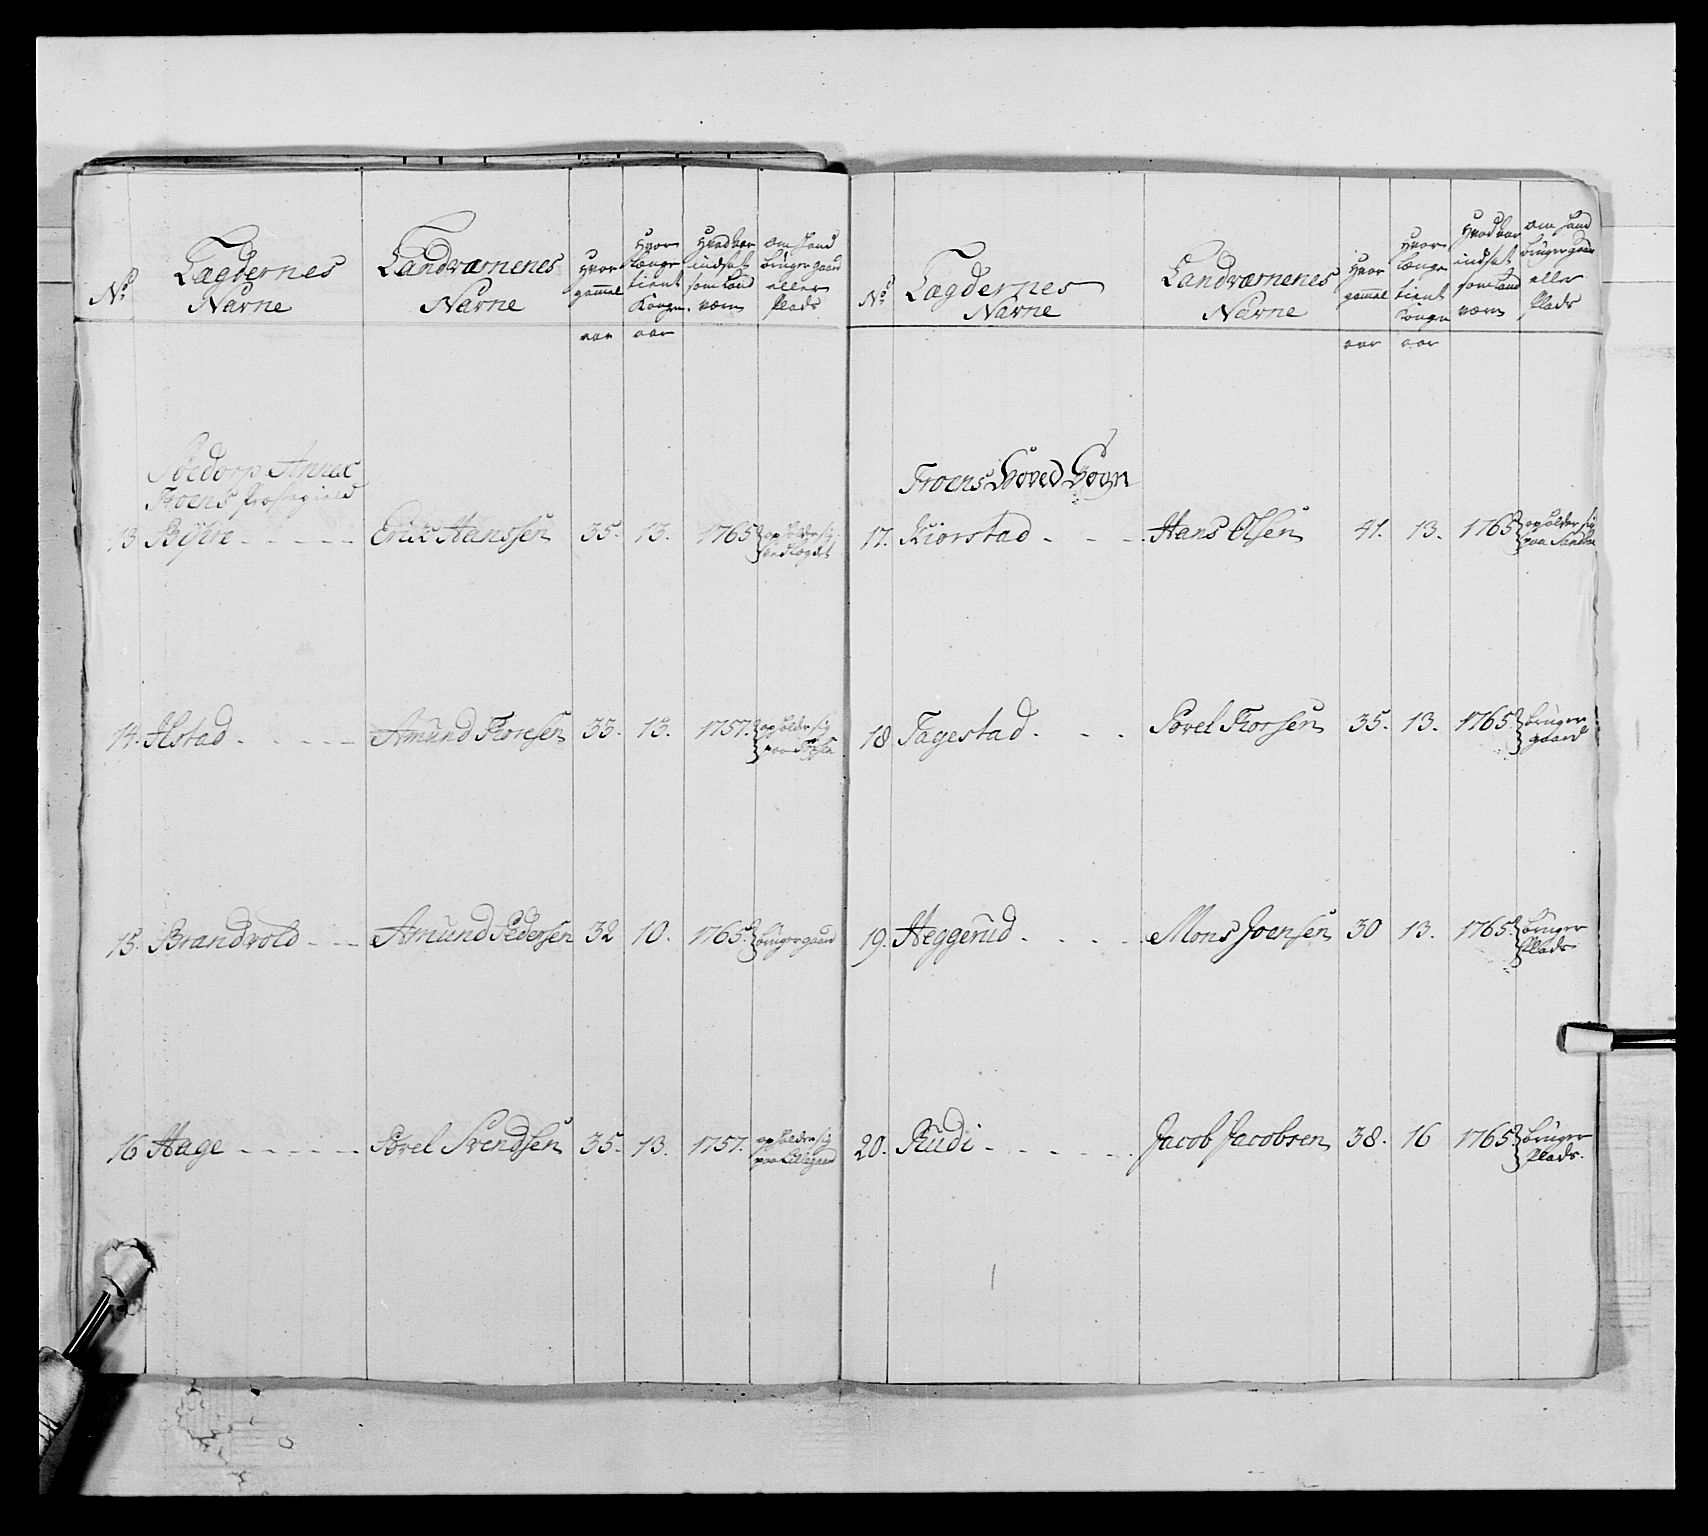 No. Lægdernes Navne Landværnenes Navne Hvor gammel aar Hvor længe tient Kongen aar Hvad aar indsat som Land værn om hand bruger gaard eller Plads
Søedorp Annex
Froens Præstegield
13 Erik Hanssen 35. 13. 1765 opholder sig i Lægdet
14. Alstad Amund Thoresen 33. 13. 1757. opholder sig paa
15. Brandvold Amund Pedersen 32 10. 1765. bruger gaard
16 Hage Povel Svendsen 35. 13. 1757. opholder sig paa Lillegaard
No. Lægdernes Navne Landværnenes Navne Hvor gammel aar Hvor længe tient Kongen aar Hvad aar indsat som Land værn om hand bruger gaard eller Plads
Froens Hoved Sogn
17. Kiorstad Hans Olsen 41. 13. 1765 opholder sig paa
18 Fagestad Povel Thorsen 35. 13. 1765. bruger gaard
19. Heggerud Mons Joensen 30 13. 1765. bruger Plads
20. Rudi Jacob Jacobsen 38. 16 1765. bruger Plads.